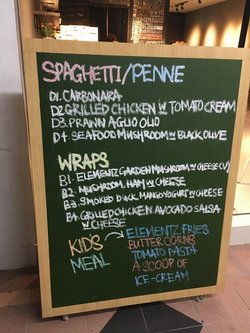 SPAGHETTI/PENNE
D1. CARBONARA
D2. GRILLED CHICKEN W TOMATO CREAM
D3. PRAWN AGLIO OLIO
D4. SEAFOOD MUSHROOM W BLACK OLIVE
WRAPS
B1. ELEMENTZ GARDEN MUSHROOM W CHEESE (V)
B2. MUSHROOM, HAM W CHEESE
B3. SMOKED DUCK MANGO YOGURT W CHEESE
B4. GRILLED CHICKEN AVOCADO SALSA
W CHEESE
KIDS
MEAL
ELEMENTZ FRIES
BUTTER CORNS
TOMATO PASTA
A SCOOP OF
ICE-CREAM